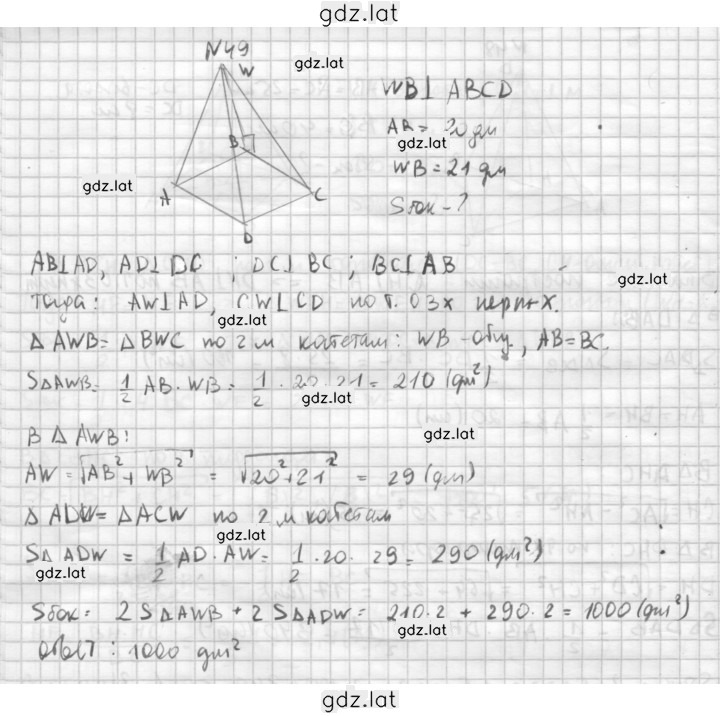 gdz.lat
N49
W
gdz.lat
WB⊥ ABCD
AB = 20 дм
gdz.lat
WB = 21 дм
B
gdz.lat
A
C
Sбок - ?
D
AB⊥AD, AD⊥DC ; DC⊥BC ; BC⊥AB
gdz.lat
Тогда: AW⊥AD, CW⊥CD по т. О 3х перп-х.
gdz.lat
Δ AWB = Δ BWC по 2м катетам: WB - общ., AB = BC.
SΔAWB = 1/2 AB · WB = 1/2 · 20 · 21 = 210 (дм²)
gdz.lat
В Δ AWB:
gdz.lat
AW = √AB² + WB² = √20² + 21² = 29 (дм)
Δ ADW = Δ ACW по 2м катетам
gdz.lat
SΔ ADW = 1/2 AD · AW = 1/2 · 20 · 29 = 290 (дм²)
gdz.lat
Sбок = 2 SΔAWB + 2 SΔADW = 210 · 2 + 290 · 2 = 1000 (дм²)
gdz.lat
Ответ : 1000 дм²
gdz.lat